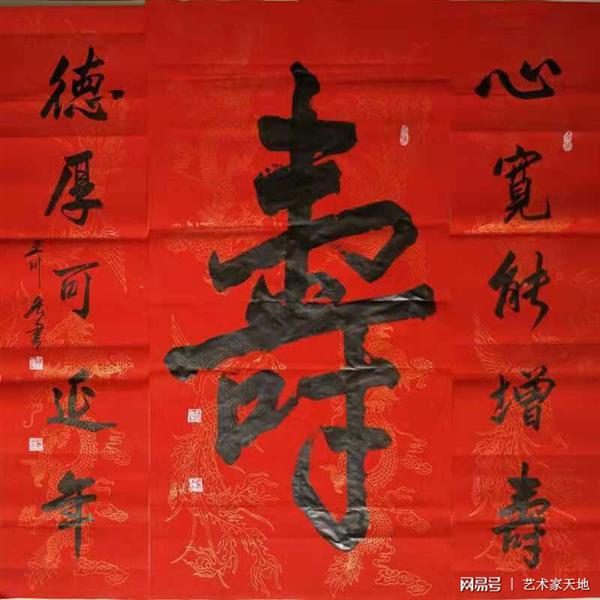 心寬能增壽
壽
德厚可延年
网易号 | 艺术家天地